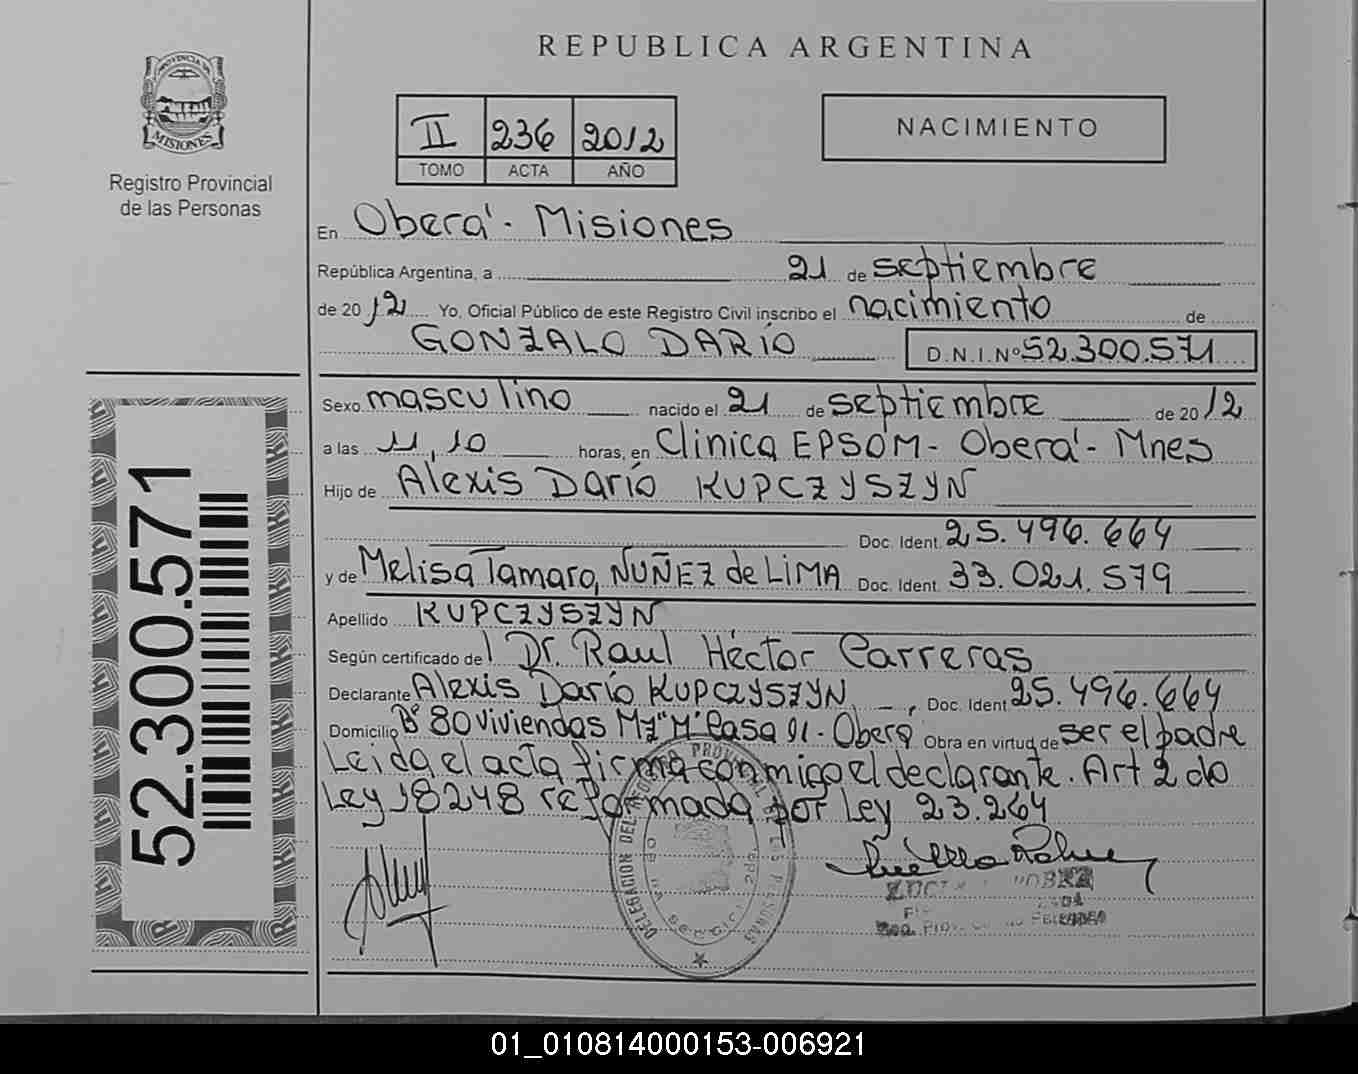 REPUBLICA ARGENTINA
PROVINCIA DE
MISIONES
Registro Provincial
de las Personas
II 236 2012
TOMO ACTA AÑO
NACIMIENTO
En Oberá - Misiones
República Argentina, a 21 de septiembre
de 2012 Yo, Oficial Público de este Registro Civil inscribo el nacimiento de
GONZALO DARÍO D.N.I. Nº 52.300.571
Sexo masculino nacido el 21 de septiembre de 2012
a las 11,10 horas, en Clínica EPSOM - Oberá - Mnes
Hijo de Alexis Darío KUPCZYSZYN
Doc. Ident. 25.496.664
y de Melisa Tamara NUÑEZ de LIMA Doc. Ident. 33.021.579
Apellido KUPCZYSZYN
Según certificado del Dr. Raul Héctor Carreras
Declarante Alexis Darío KUPCZYSZYN, Doc. Ident 25.496.664
Domicilio Bº 80 viviendas Mz "M" Casa 91 - Oberá Obra en virtud de ser el padre
Leida el acta firma conmigo el declarante. Art 2 de
Ley 18248 reformada por Ley 23.264
DELEGACION DEL REGISTRO PROVINCIAL DE LAS PERSONAS
52.300.571
01_010814000153-006921